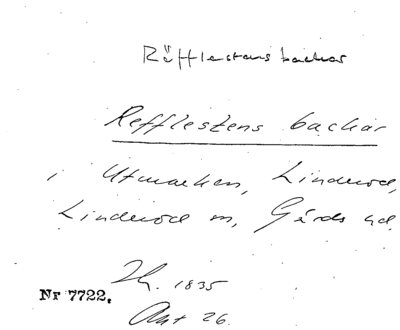 Räfflestens backar
Refflestens backar
i Utmarken, Linderöd,
Linderöd sn, Gärds hd.
Zh. 1835
Nr 7722.
Akt 26.